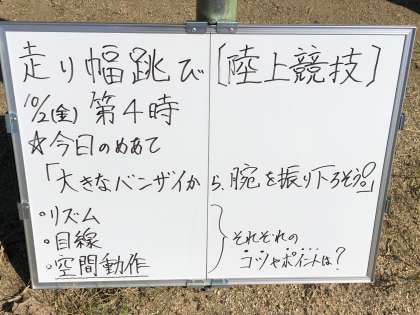 走り幅跳び [陸上競技]
10/2(金) 第4時
☆今日のめあて
「大きなバンザイから、腕を振り下ろそう!」
・リズム
・目線
・空間動作
それぞれの
コツやポイントは?